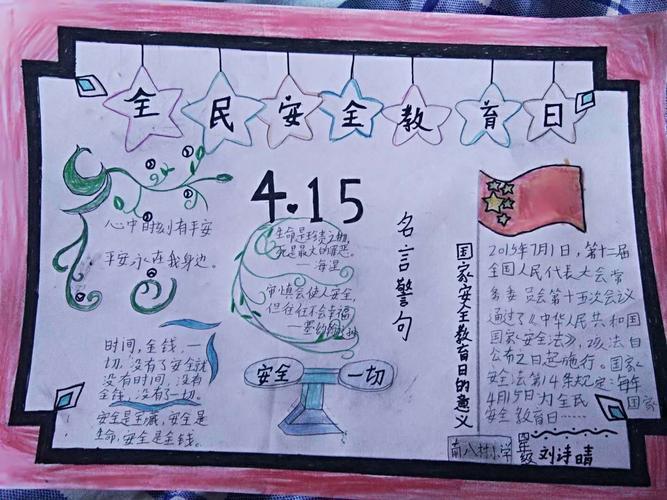 全民安全教育日
心中时刻有平安
平安永在我身边。
时间,金钱,一
切,没有了安全就
没有时间,没有
金钱,没有了一切。
安全是宝藏,安全是
生命,安全是金钱。
4.15
生命是珍贵之物,
死是最大的罪恶。
——海涅
审慎会使人安全,
但往往不会幸福
——塞约翰
安全 一切
名言警句
国家安全教育日的意义
2015年7月1日,第十二届
全国人民代表大会常
务委员会第十五次会议
通过了《中华人民共和国
国家安全法》,该法自
公布之日起施行。国家
安全法第14条规定:每年
4月15日为全民国家
安全教育日……
南八村小学 四年级 刘诗晴